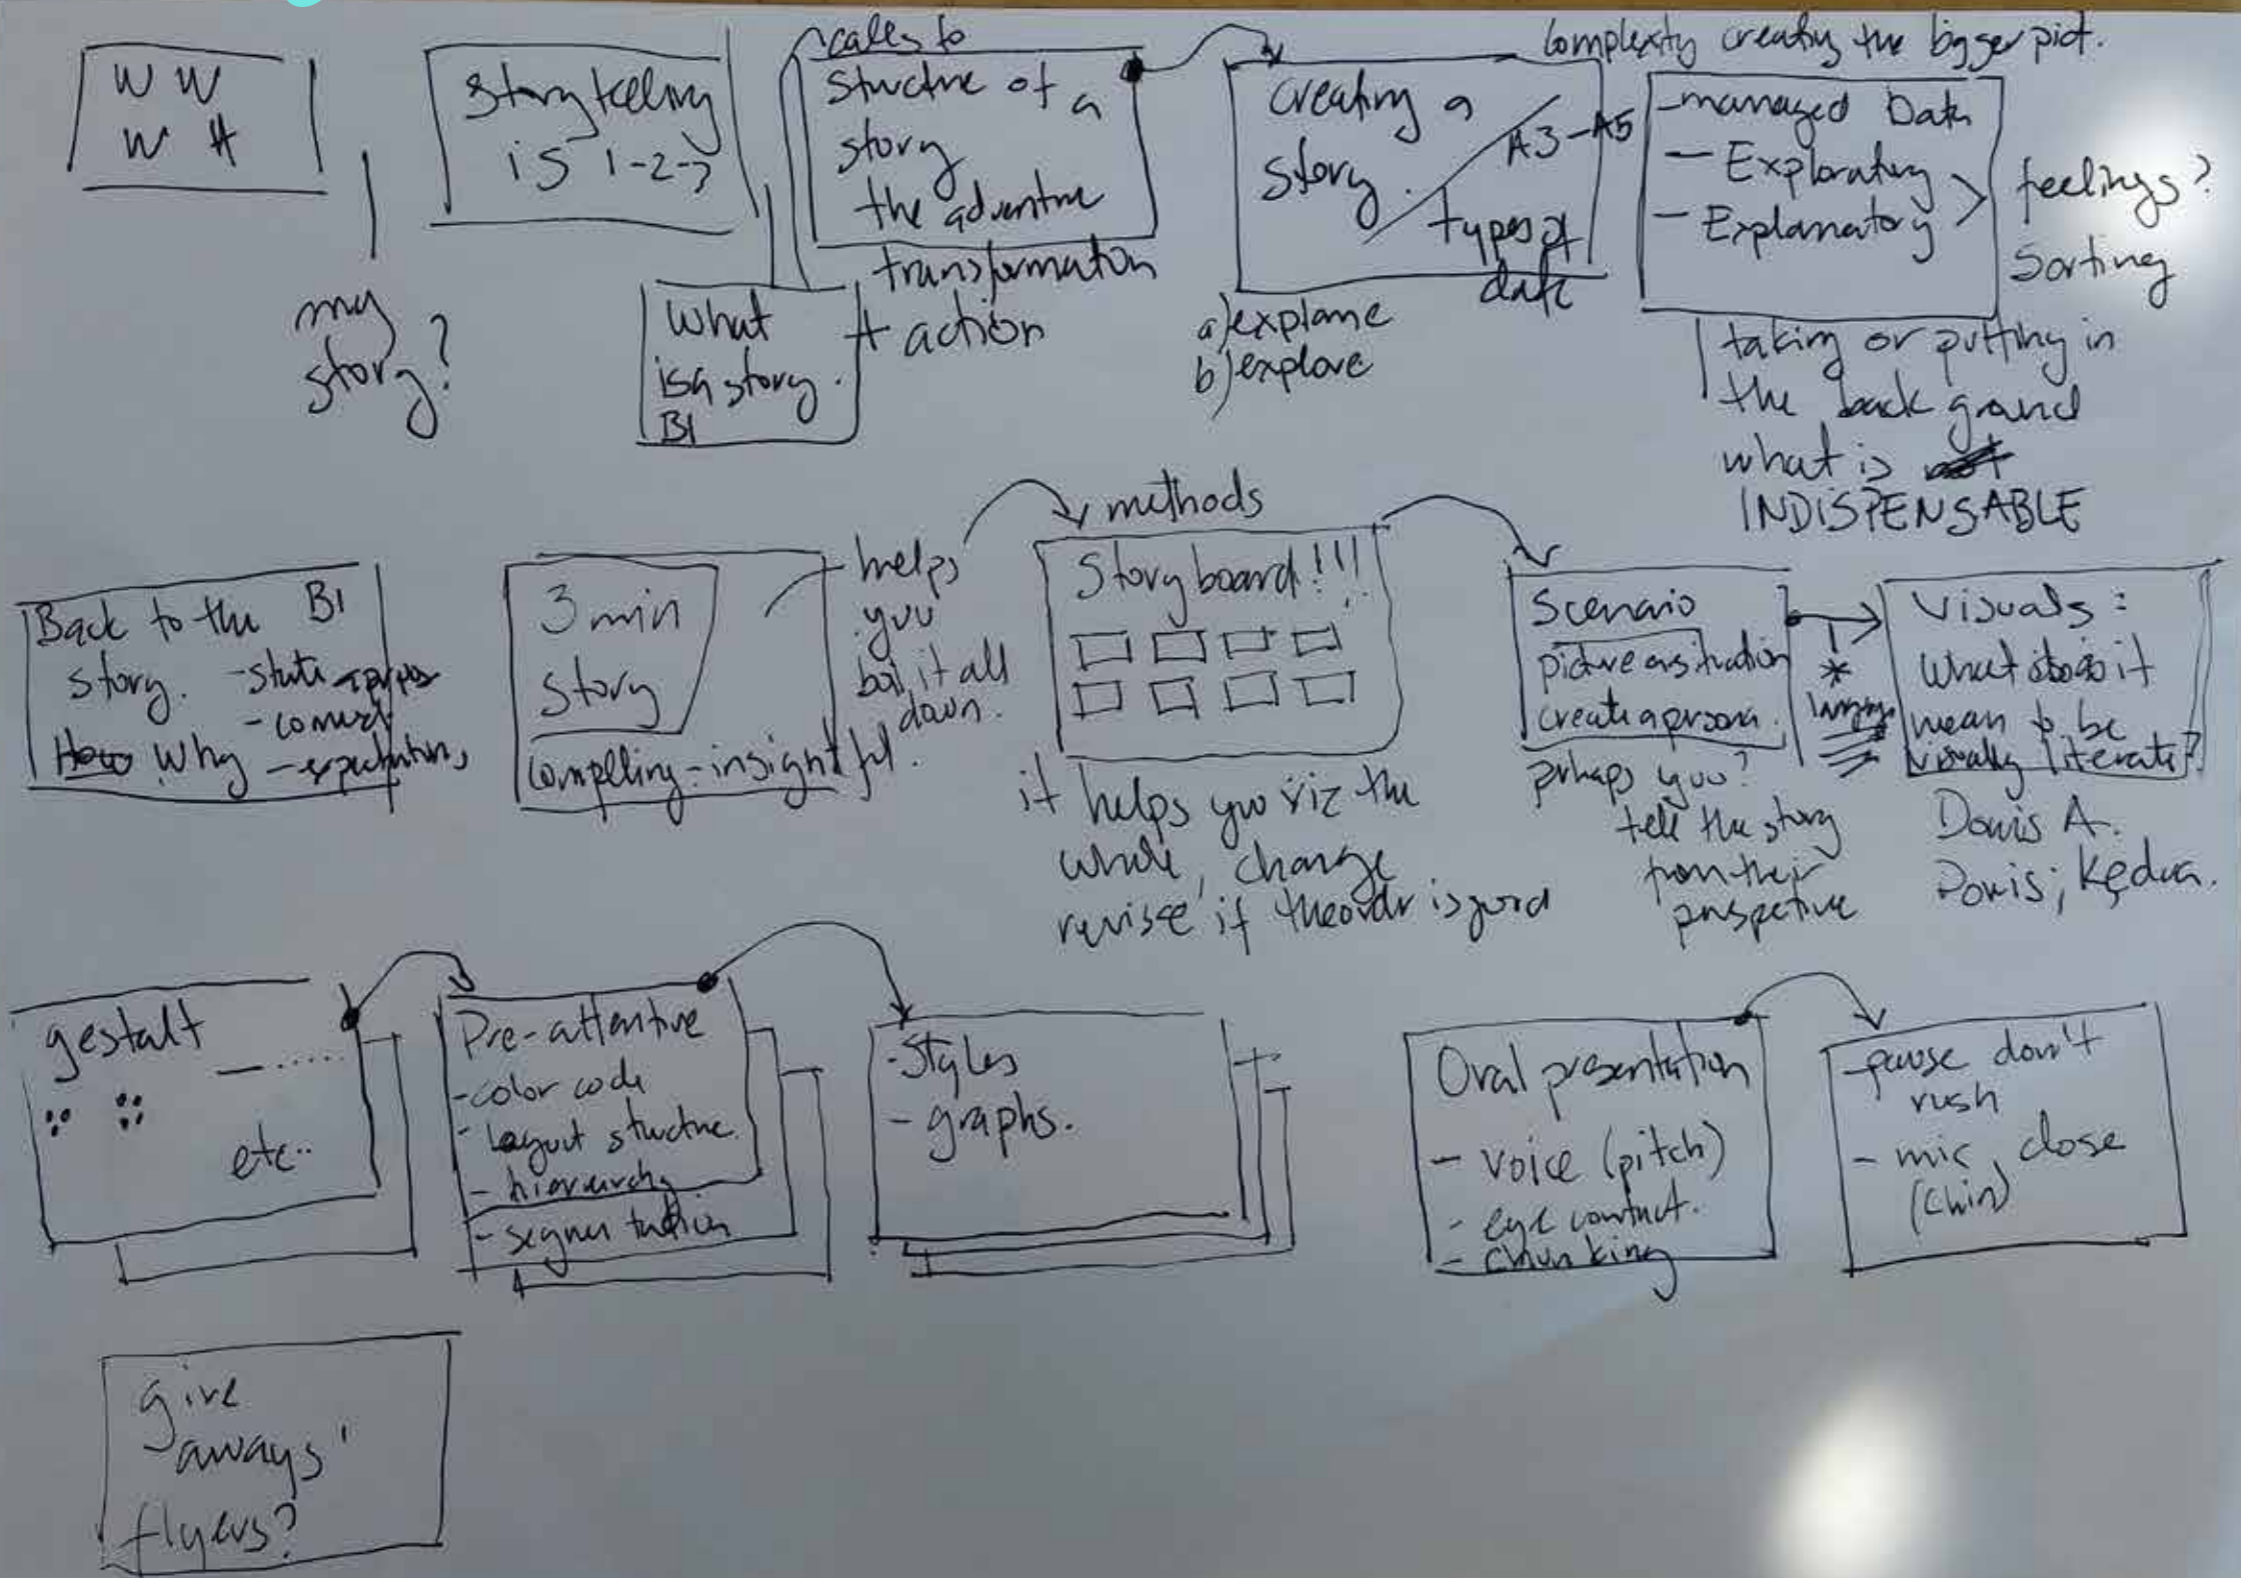 W W
W H
my
story?
Storytelling
is 1-2-3
What
is a story.
BI
calls to
structure of a
story
the adventure
transformation
+ action
creating a
story.
A3-A5
types of
data
a) explane
b) explore
Complexity creating the bigger pict.
- managed Data
- Exploratory
- Explanatory
feelings?
Sorting
taking or putting in
the back ground
what is
INDISPENSABLE
Back to the BI
story.
- state
-
- expectations
How Why
3 min
story
compelling - insightful.
helps
you
boil it all
down.
methods
Storyboard!!!
it helps you viz the
whole, change
revise if the order is good
Scenario
picture a situation
create a persona.
perhaps you?
tell the story
from their
perspective
*
language
Visuals:
What does it
mean to be
visually literate?
Donis A.
Donis;
gestalt
etc..
Pre-attentive
- color code
- layout structure.
- hierarchy
- segmentation
- Styles
- graphs.
Oral presentation
- voice (pitch)
- eye contact.
- chunking
- pause don't
rush
- mic close
(chin)
give
aways'
flyers?